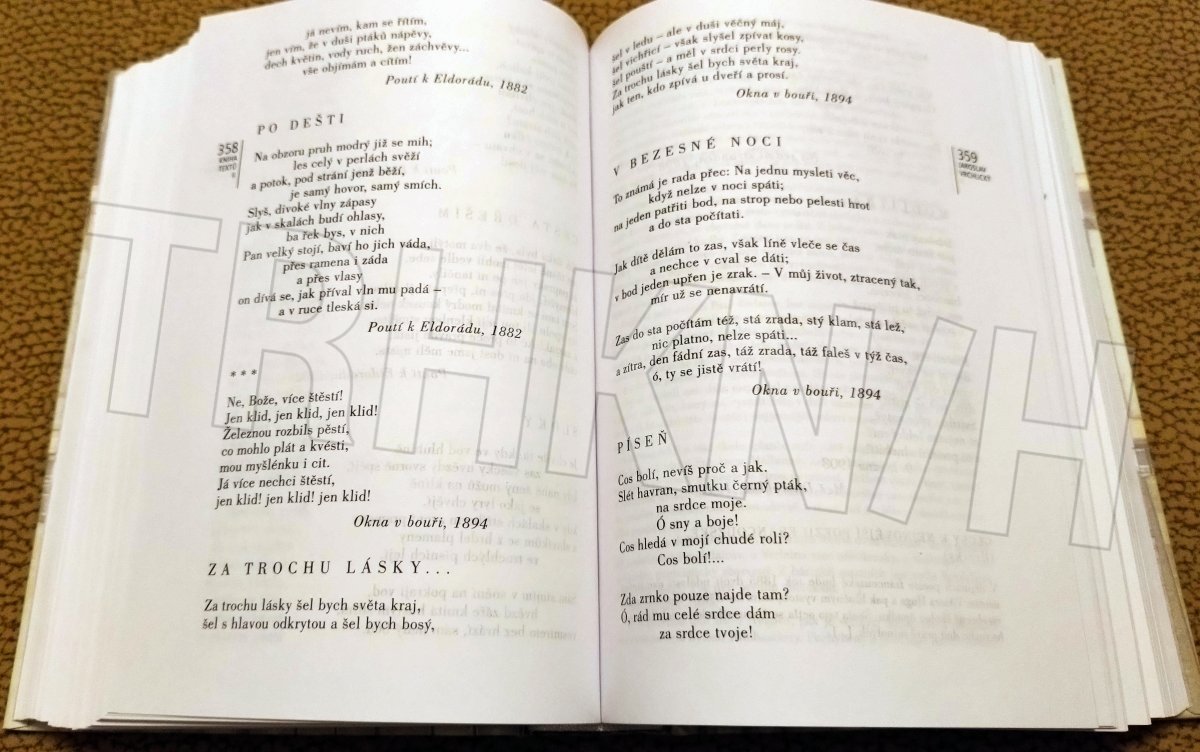 já nevím, kam se řítím,
jen vím, že v duši ptáků nápěvy,
dech květin, vody ruch, žen záchvěvy...
vše objímám a cítím!
Poutí k Eldorádu, 1882
358
KNIHA
TEXTŮ
II
PO DEŠTI
Na obzoru pruh modrý již se mih;
les celý v perlách svěží
a potok, pod strání jenž běží,
je samý hovor, samý smích.
Slyš, divoké vlny zápasy
jak v skalách budí ohlasy,
ba řek bys, v nich
Pan velký stojí, baví ho jich váda,
přes ramena i záda
a přes vlasy
on dívá se, jak příval vln mu padá –
a v ruce tleská si.
Poutí k Eldorádu, 1882
* * *
Ne, Bože, více štěstí!
Jen klid, jen klid, jen klid!
Železnou rozbils pěstí,
co mohlo plát a kvésti,
mou myšlénku i cit.
Já více nechci štěstí,
jen klid! jen klid! jen klid!
Okna v bouři, 1894
ZA TROCHU LÁSKY...
Za trochu lásky šel bych světa kraj,
šel s hlavou odkrytou a šel bych bosý,
šel v ledu – ale v duši věčný máj,
šel vichřicí – však slyšel zpívat kosy,
šel pouští – a měl v srdci perly rosy.
Za trochu lásky šel bych světa kraj,
jak ten, kdo zpívá u dveří a prosí.
Okna v bouři, 1894
359
JAROSLAV
VRCHLICKÝ
V BEZESNÉ NOCI
To známá je rada přec: Na jednu mysleti věc,
když nelze v noci spáti;
na jeden patřiti bod, na strop nebo pelesti hrot
a do sta počítati.
Jak dítě dělám to zas, však líně vleče se čas
a nechce v cval se dáti;
v bod jeden upřen je zrak. – V můj život, ztracený tak,
mír už se nenavrátí.
Zas do sta počítám též, stá zrada, stý klam, stá lež,
nic platno, nelze spáti...
a zítra, den fádní zas, táž zrada, táž faleš v týž čas,
ó, ty se jistě vrátí!
Okna v bouři, 1894
PÍSEŇ
Cos bolí, nevíš proč a jak.
Slét havran, smutku černý pták,
na srdce moje.
Ó sny a boje!
Cos hledá v mojí chudé roli?
Cos bolí!...
Zda zrnko pouze najde tam?
Ó, rád mu celé srdce dám
za srdce tvoje!
TRHKNIH